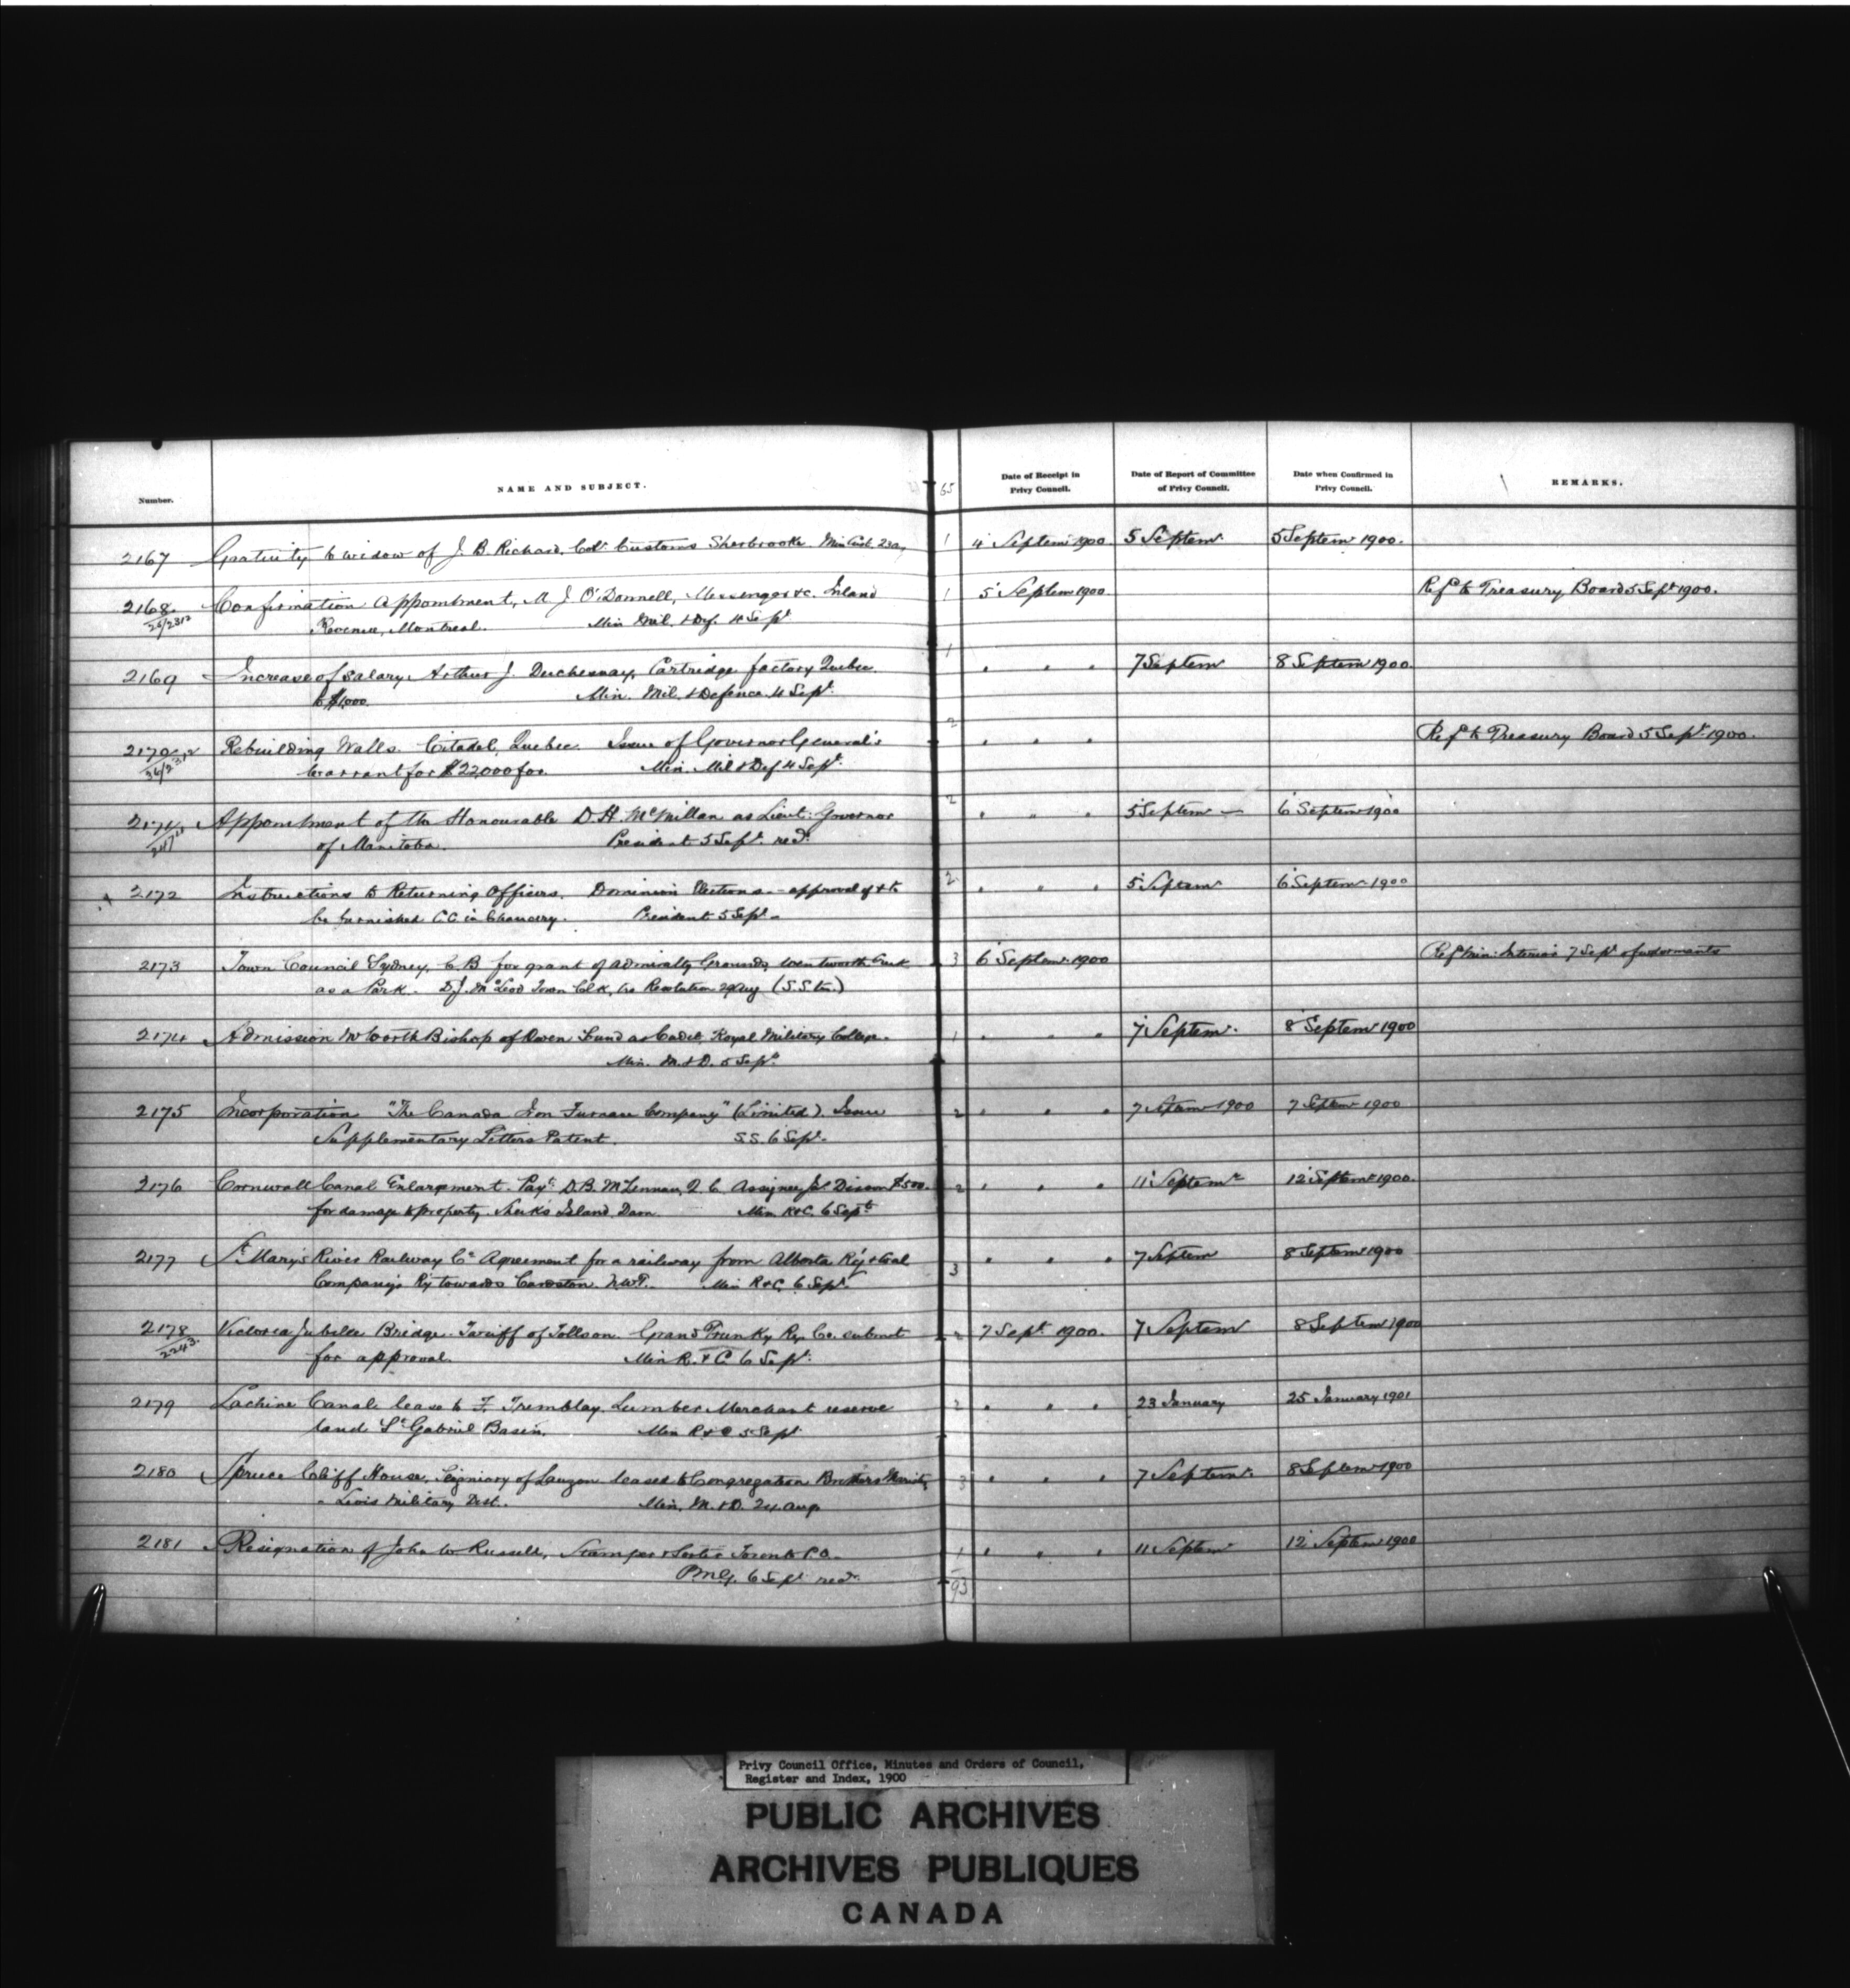 Number. NAME AND SUBJECT. 65 Date of Receipt in Privy Council. Date of Report of Committee of Privy Council. Date when Confirmed in Privy Council. REMARKS.
2167 Gratuity to widow of J. B. Richard, Col. Customs Sherbrooke Min Cust. 1 4 Septem 1900 5 Septem 5 Septem 1900.
2168 Confirmation Appointment, M. J. O'Donnell, Messenger &c. Inland 1 5 Septem 1900 Ref to Treasury Board 5 Sept 1900.
Revenue, Montreal. Min Mil. & Def. 4 Sept
2169 Increase of salary, Arthur J. Duchesnay, Cartridge factory Quebec 1 " " " 7 Septem 8 Septem 1900
to $1,000. Min. Mil. & Defence 4 Sept.
2170 Rebuilding Walls. Citadel, Quebec. Issue of Governor General's 2 " " " Ref to Treasury Board 5 Sept. 1900.
Warrant for $22,000 for. Min. Mil & Def 4 Sept.
2171 Appointment of the Honourable D. H. McMillan as Lieut: Governor 2 " " " 5 Septem 6 Septem 1900
of Manitoba. President 5 Sept. recd.
2172 Instructions to Returning Officers. Dominion Elections - approval of & to 2 " " " 5 Septem 6 Septem 1900
be furnished C.C. in Chancery. President 5 Sept.
2173 Town Council Sydney, C.B. for grant of Admiralty Grounds, Wentworth Creek 3 6 Septem 1900 Ref Min: Interior 7 Sept
as a Park. D. J. McLeod Town Clk, Resolution 29 Aug (S.S. )
2174 Admission W Worth Bishop of Owen Sound as Cadet, Royal Military College. 1 " " " 7 Septem. 8 Septem 1900
Min. M. & D. 5 Sept.
2175 Incorporation "The Canada Iron Furnace Company" (Limited). Issue 2 " " " 7 Septem 1900 7 Septem 1900
Supplementary Letters Patent. S.S. 6 Sept.
2176 Cornwall Canal Enlargement. Payt. D. B. McLennan, Q.C. Assignee Jas. Dixon $500. 2 " " " 11 Septemr 12 Septemr 1900.
for damage to property Sheiks Island Dam. Min R & C. 6 Sept
2177 St. Mary's River Railway Co. Agreement for a railway from Alberta Ry & Coal 3 " " " 7 Septem 8 Septem 1900
Company's Ry towards Cardston. N.W.T. Min R & C. 6 Sept.
2178 Victoria Jubilee Bridge. Tariff of Tolls on. Grand Trunk Ry. Co. submit 2 7 Sept 1900. 7 Septem 8 Septem 1900
2243
for approval. Min R. & C 6 Sept.
2179 Lachine Canal: lease to F. Tremblay. Lumber Merchant reserve 2 " " " 23 January 25 January 1901
land St. Gabriel Basin. Min R & C 5 Sept
2180 Spruce Cliff House, Seigniory of Lauzon leased to Congregation Brothers 3 " " " 7 Septem. 8 Septem 1900
- Levis Military Dist. Min. M. & D. 24 Aug
2181 Resignation of John W Russell, Stamper & Sorter Toronto P.O. 1 " " " 11 Septem 12 Septem 1900
P.M.G. 6 Sept recd.
93
Privy Council Office, Minutes and Orders of Council,
Register and Index, 1900
PUBLIC ARCHIVES
ARCHIVES PUBLIQUES
CANADA